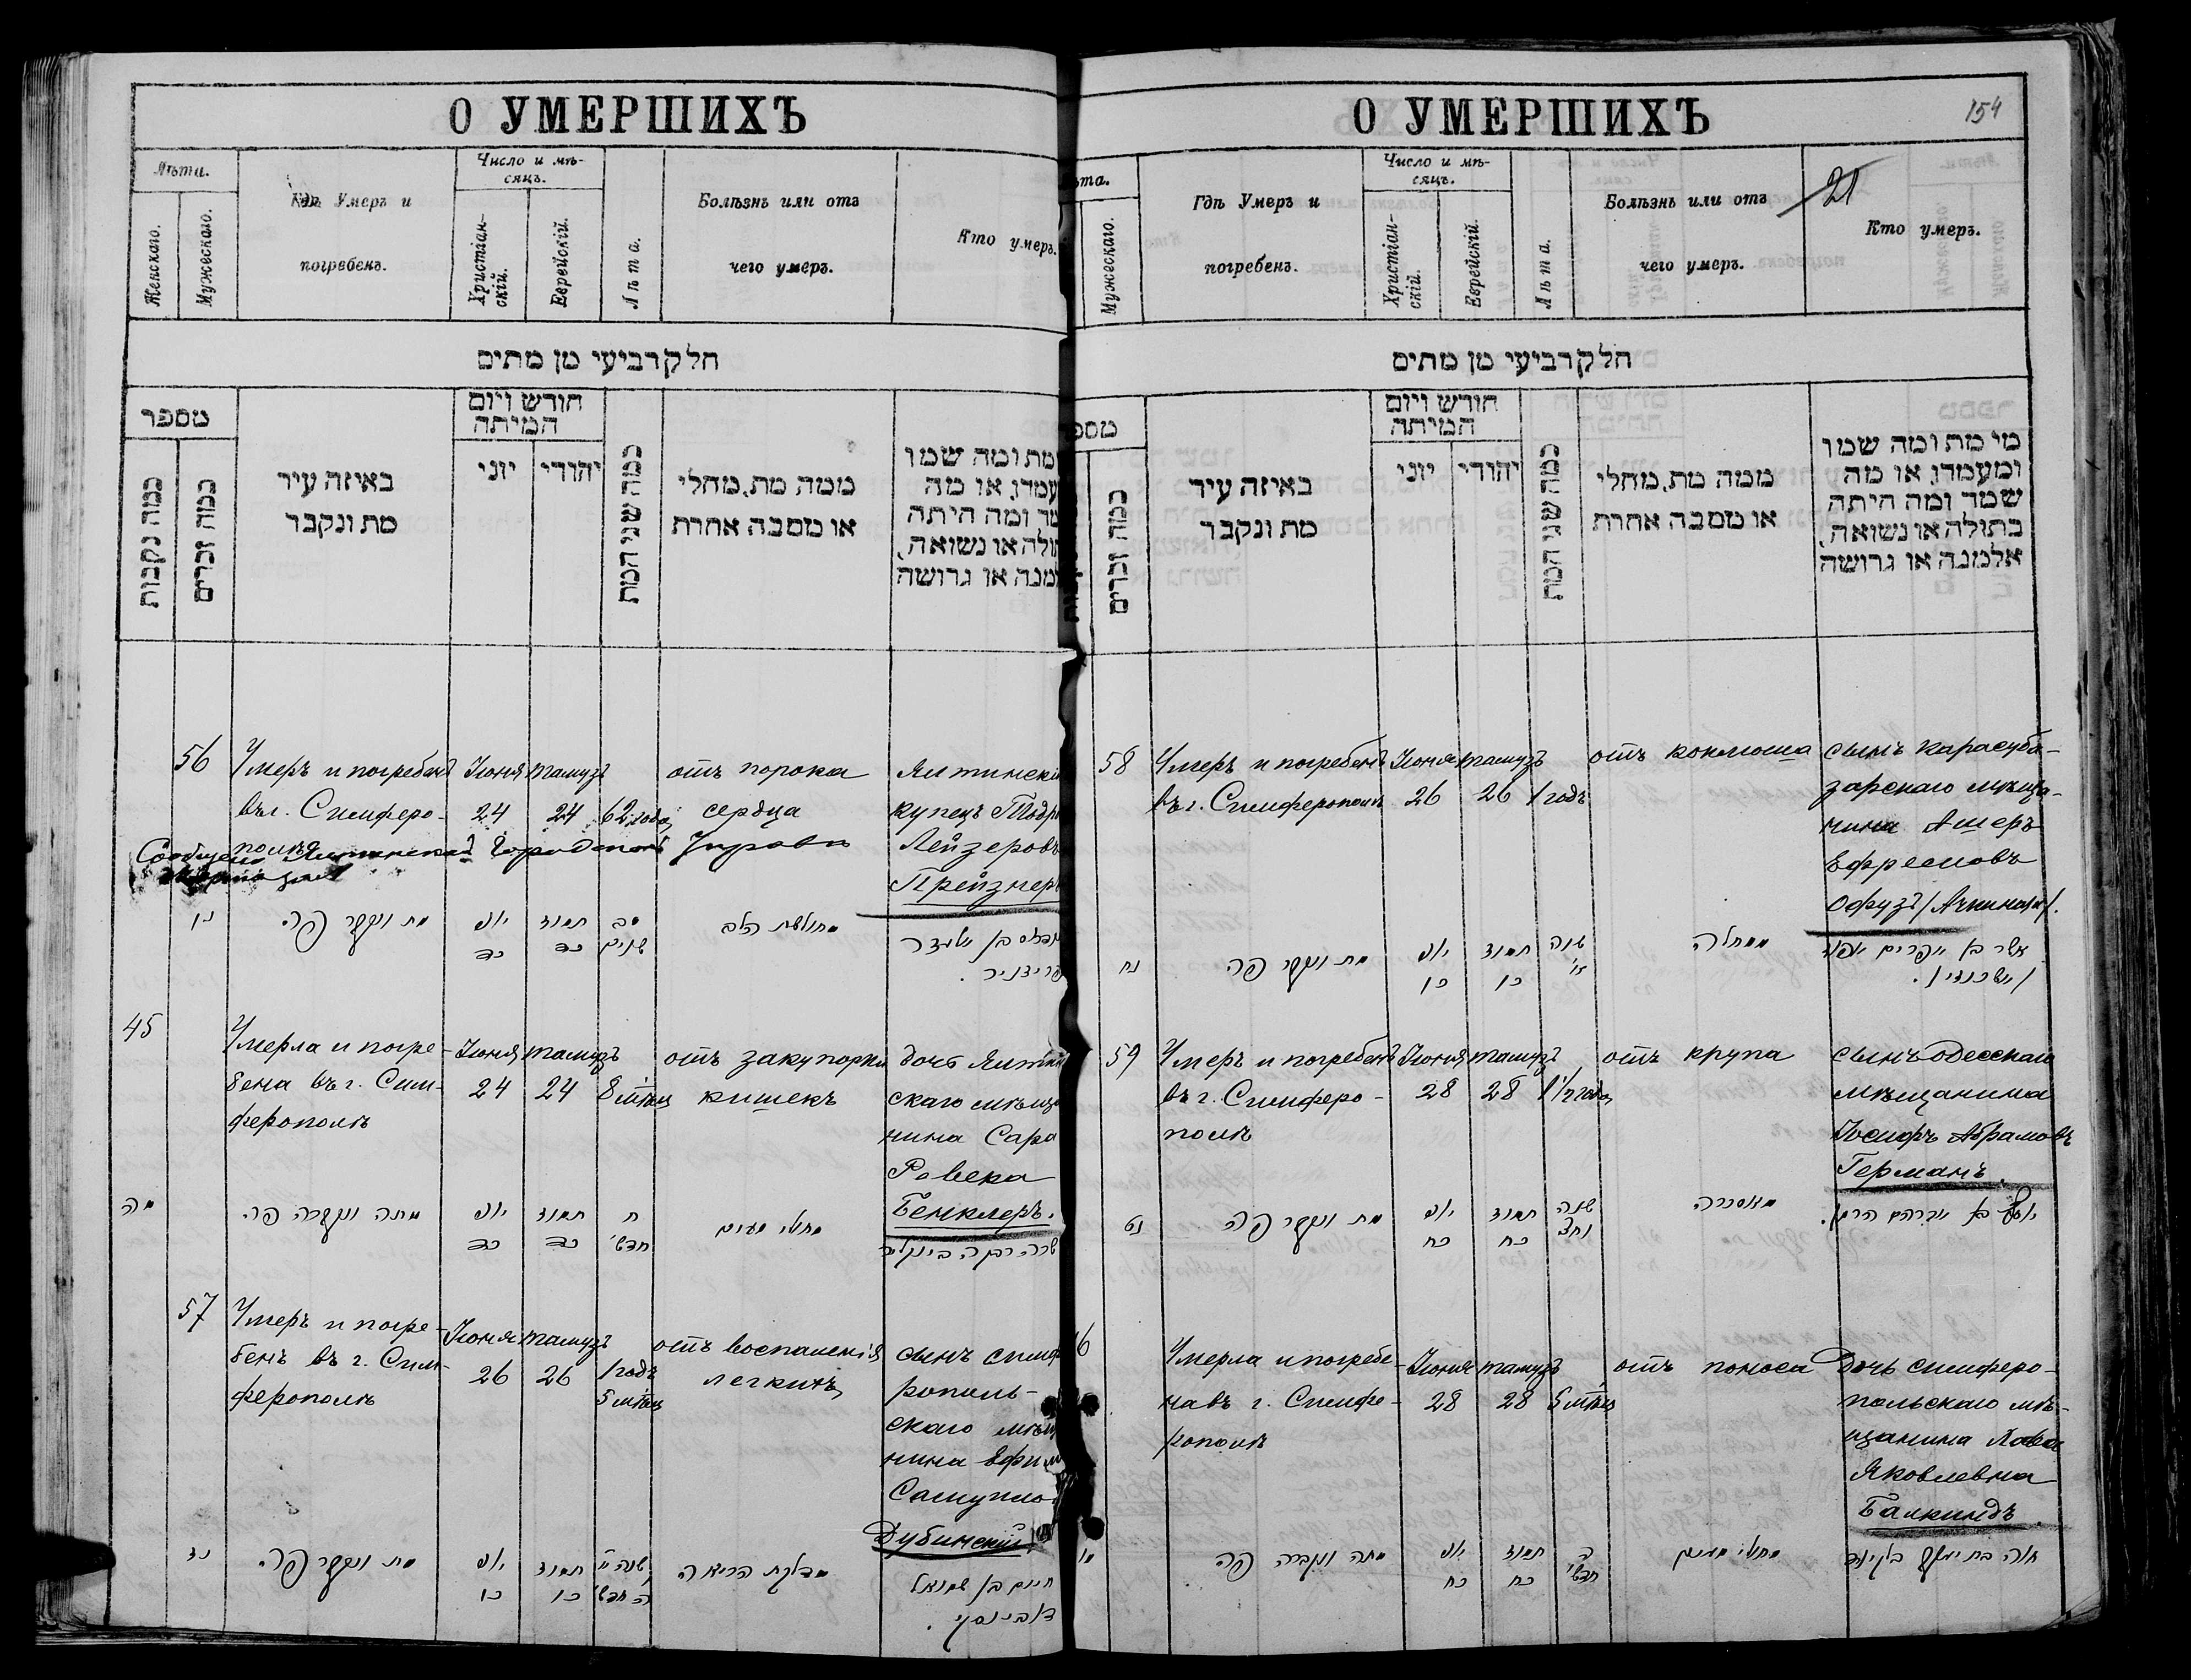 О УМЕРШИХЪ
Лѣта.
Женскаго.
Мужескаго.
Гдѣ Умеръ и
погребенъ.
Число и мѣ-
сяцъ.
Христіан-
скій.
Еврейскій.
Лѣта.
Болѣзнь или отъ
чего умеръ.
Кто умеръ.
חלק רביעי מן מתים
מספר
כמה נקבות
כמה זכרים
באיזה עיר
מת ונקבר
חודש ויום
המיתה
יוני
יהודי
כמה שני המת
ממה מת, מחלי
או מסבה אחרת
מת ומה שמו
עמדו, או מה
ומה היתה
או נשואה,
או גרושה
56
Умеръ и погребенъ
въ г. Симферо-
полѣ
Іюня
24
тамузъ
24
62 года
отъ порока
сердца
купецъ
Лейзеровъ
Прейзнеръ
Сообщено
נו
מת ונקבר פה
יוני
כד
תמוז
כד
סב
שנים
מחולשת הלב
פרייזניר.
45
Умерла и погре-
бена въ г. Сим-
ферополѣ
Іюня
24
тамузъ
24
8 мѣсяц
отъ закупорки
кишекъ
дочь Ялтин
скаго мѣща
нина Сара
Ревека
Бенклеръ.
מה
מתה ונקברה פה
יוני
כד
תמוז
כד
ח
חדשי'
מחולי מעים
שרה רבקה בינקליר
57
Умеръ и погре-
бенъ въ г. Сим-
ферополѣ
Іюня
26
тамузъ
26
1 годъ
5 мѣсяц
отъ воспаленія
легкихъ
сынъ симфе
рополь-
скаго мѣща
нина Ефим
Самуило
Дубинскій
נז
מת ונקבר פה
יוני
כו
תמוז
כו
שנה
ה חדשי'
מדלקת הריאה
חיים בן שמואל
דובינסקי.
О УМЕРШИХЪ
154
21
та.
Мужескаго.
Гдѣ Умеръ и
погребенъ.
Число и мѣ-
сяцъ.
Христіан-
скій.
Еврейскій.
Лѣта.
Болѣзнь или отъ
чего умеръ.
Кто умеръ.
חלק רביעי מן מתים
מספ
כמה זכרים
באיזה עיר
מת ונקבר
חודש ויום
המיתה
יוני
יהודי
כמה שני המת
ממה מת, מחלי
או מסבה אחרת
מי מת ומה שמו
ומעמדו, או מה
שמה ומה היתה
בתולה או נשואה,
אלמנה או גרושה
58
Умеръ и погребенъ
въ г. Симферополѣ
Іюня
26
тамузъ
26
1 годъ
отъ коклюша
сынъ карасуба-
зарскаго мѣща-
нина Ашеръ
Ефремовъ
Офузъ /Ачкинази/.
נח
מת ונקבר פה
יוני
כו
תמוז
כו
שנה
א'
ממחלה
אשר בן אפרים
/אשכנזי/.
59
Умеръ и погребенъ
въ г. Симферо-
полѣ
Іюня
28
тамузъ
28
1 1/2 года
отъ крупа
сынъ одесскаго
мѣщанина
Іосифъ Абрамовъ
Германъ.
נט
מת ונקבר פה
יוני
כח
תמוז
כח
שנה
וחצי
מאסכרה
יוסף בן אברהם הרמן.
6
Умерла и погребе-
на въ г. Симфе-
рополѣ
Іюня
28
тамузъ
28
5 мѣсяц
отъ поноса
Дочь симферо-
польскаго мѣ-
щанина Хава
Яковлевна
Балкиндъ.
מתה ונקברה פה
יוני
כח
תמוז
כח
ה
חדשי'
מחולי מעים
חוה בת יעקב בלקינד